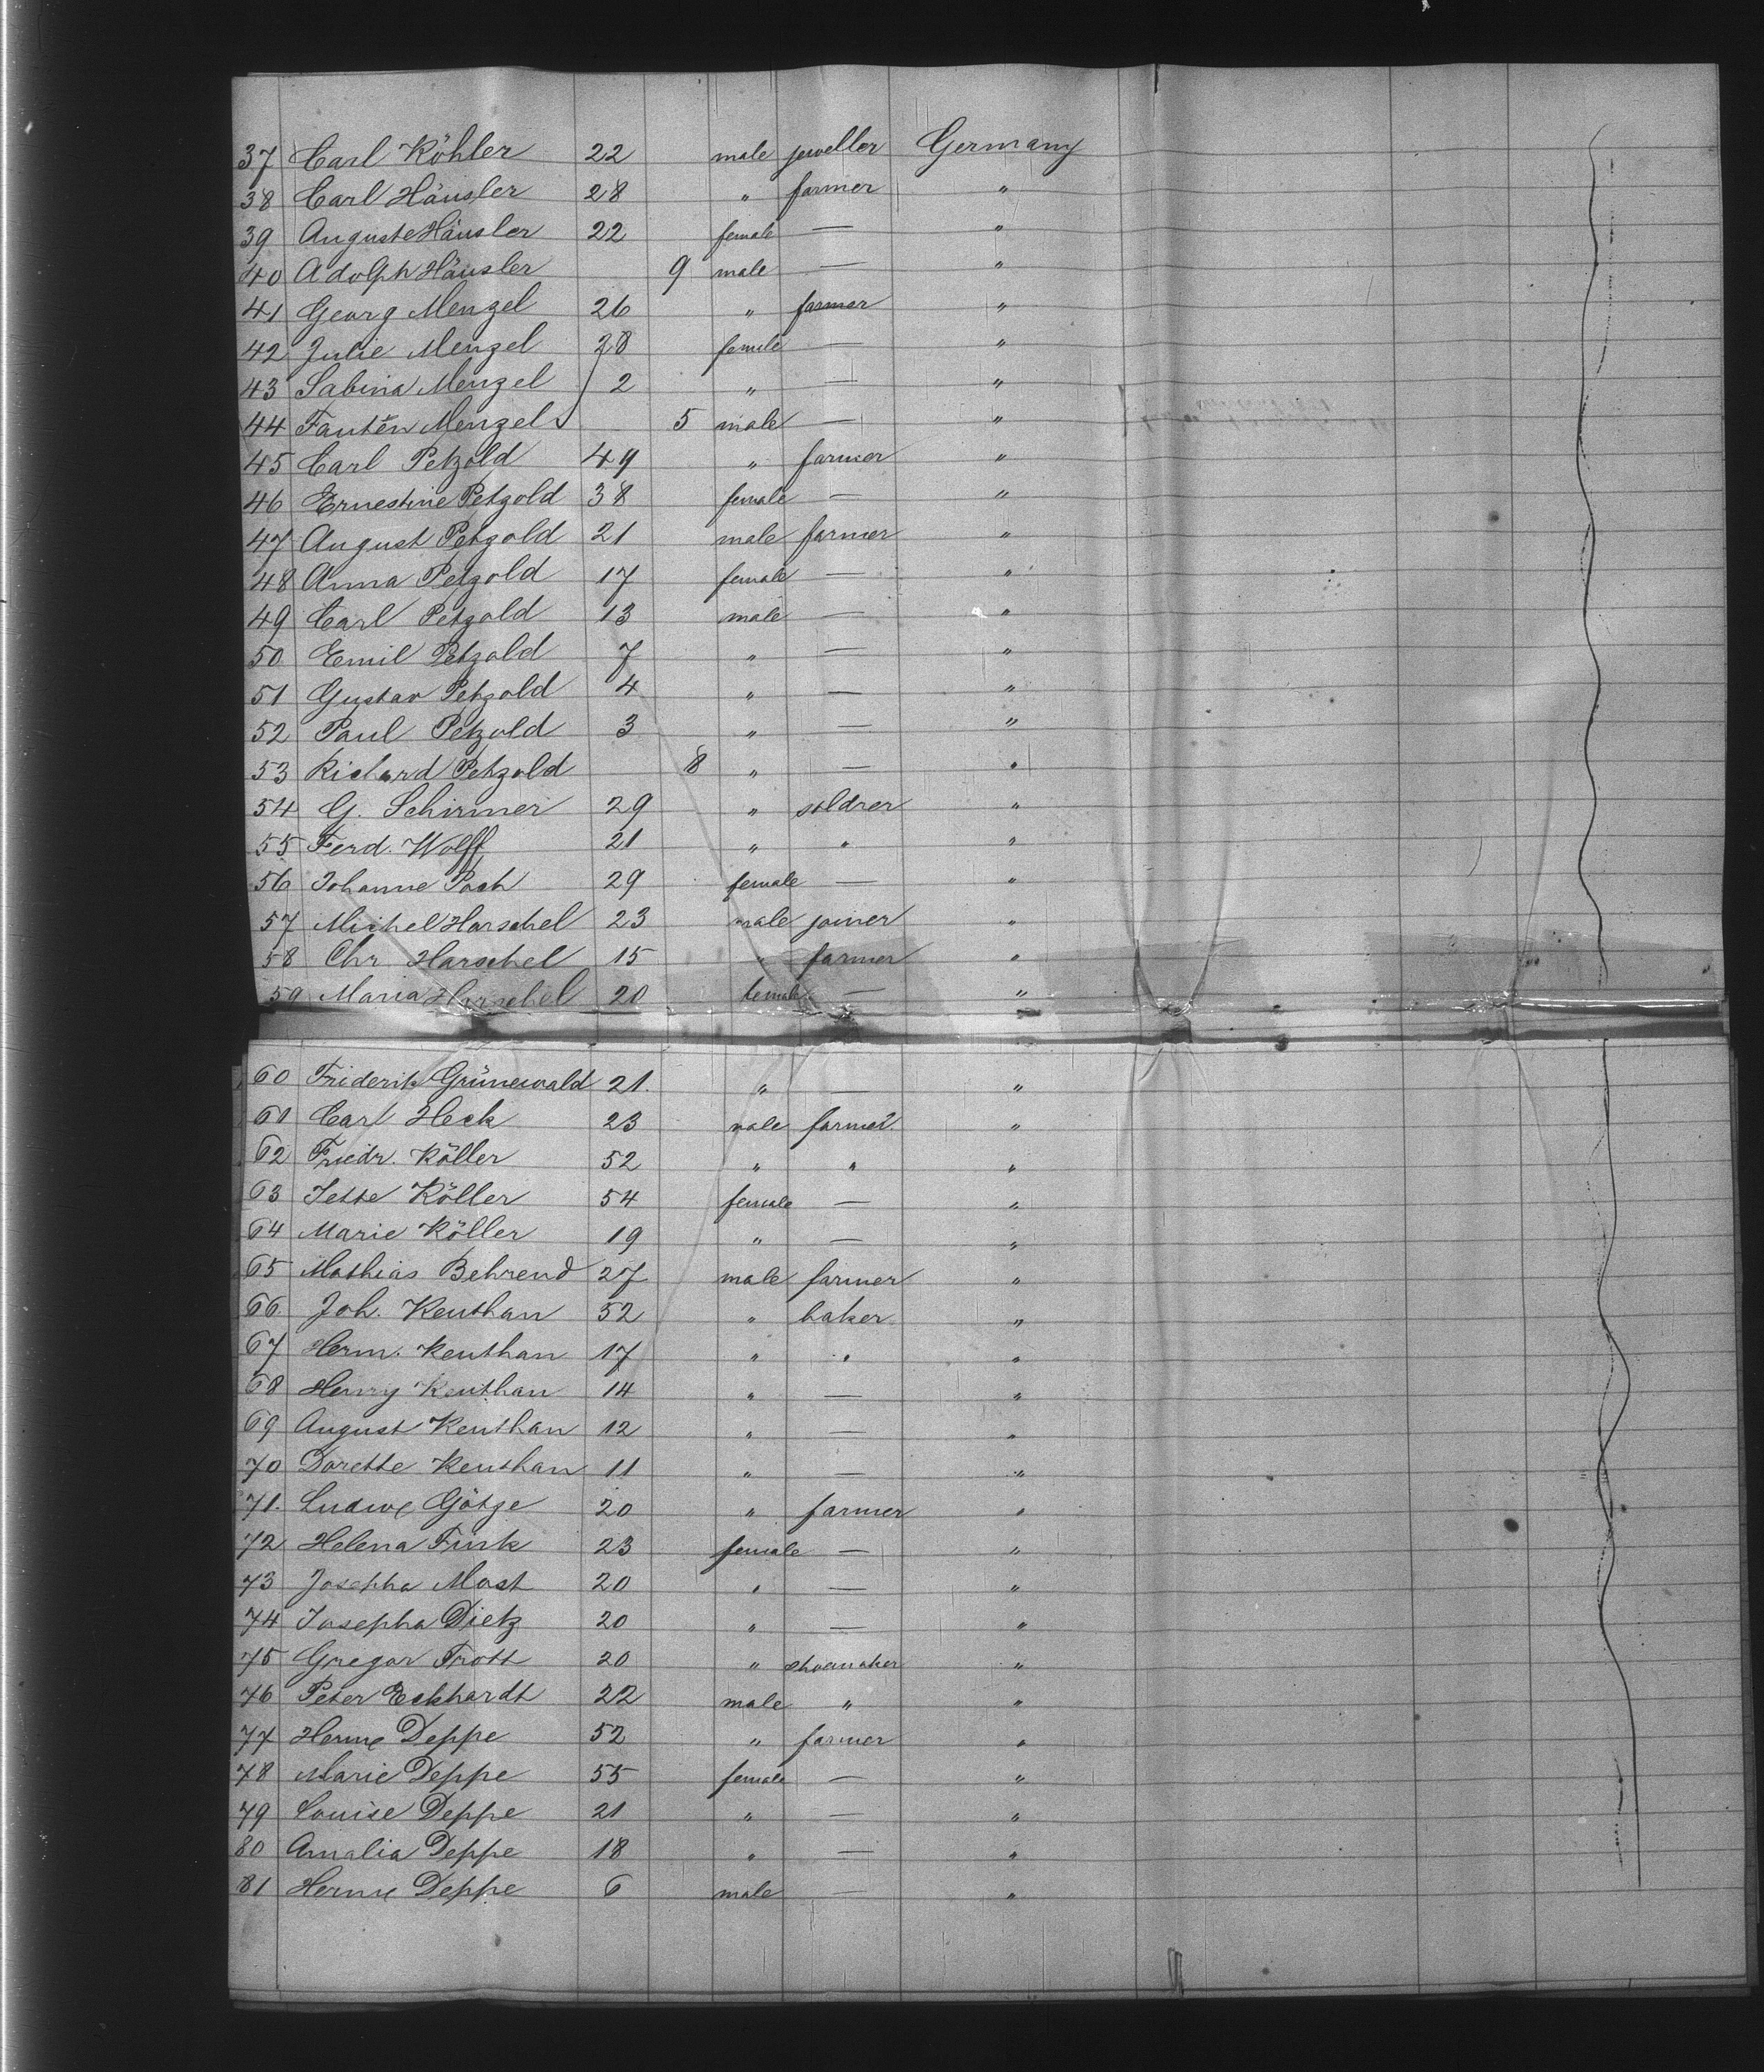 37 Carl Köhler 22 male jeweller Germany
38 Carl Häusler 28 " farmer "
39 Auguste Häusler 22 female — "
40 Adolph Häusler 9 male — "
41 Georg Menzel 26 " farmer "
42 Julie Menzel 28 female — "
43 Sabina Menzel 2 " — "
44 Menzel 5 male — "
45 Carl Petzold 49 " farmer "
46 Ernestine Petzold 38 female — "
47 August Petzold 21 male farmer "
48 Anna Petzold 17 female — "
49 Carl Petzold 13 male — "
50 Emil Petzold 7 " — "
51 Gustav Petzold 4 " — "
52 Paul Petzold 3 " — "
53 Richard Petzold 8 " — "
54 G. Schirmer 29 " "
55 Ferd. Wolff 21 " " "
56 Johanne 29 female — "
57 Michel Harschel 23 male joiner "
58 Chr Harschel 15 " farmer "
59 Maria Harschel 20 female — "
60 Friderik Grünewald 21. " — "
61 Carl Heck 23 male farmer "
62 Friedr. Köller 52 " " "
63 Jette Köller 54 female — "
64 Marie Köller 19 " — "
65 Mathias Behrend 27 male farmer "
66 Joh. Keuthan 52 " baker "
67 Herm. Keuthan 17 " " "
68 Henry Keuthan 14 " — "
69 August Keuthan 12 " — "
70 Dorette Keuthan 11 " — "
71. Ludwg Götze 20 " farmer "
72 Helena 23 female — "
73 Josepha Most 20 " — "
74 Josepha Dietz 20 " — "
75 Gregor Trott 20 " shoemaker "
76 Peter Eckhardt 22 male " "
77 Deppe 52 " farmer "
78 Marie Deppe 55 female — "
79 Louise Deppe 21 " — "
80 Amalia Deppe 18 " — "
81 Deppe 6 male — "